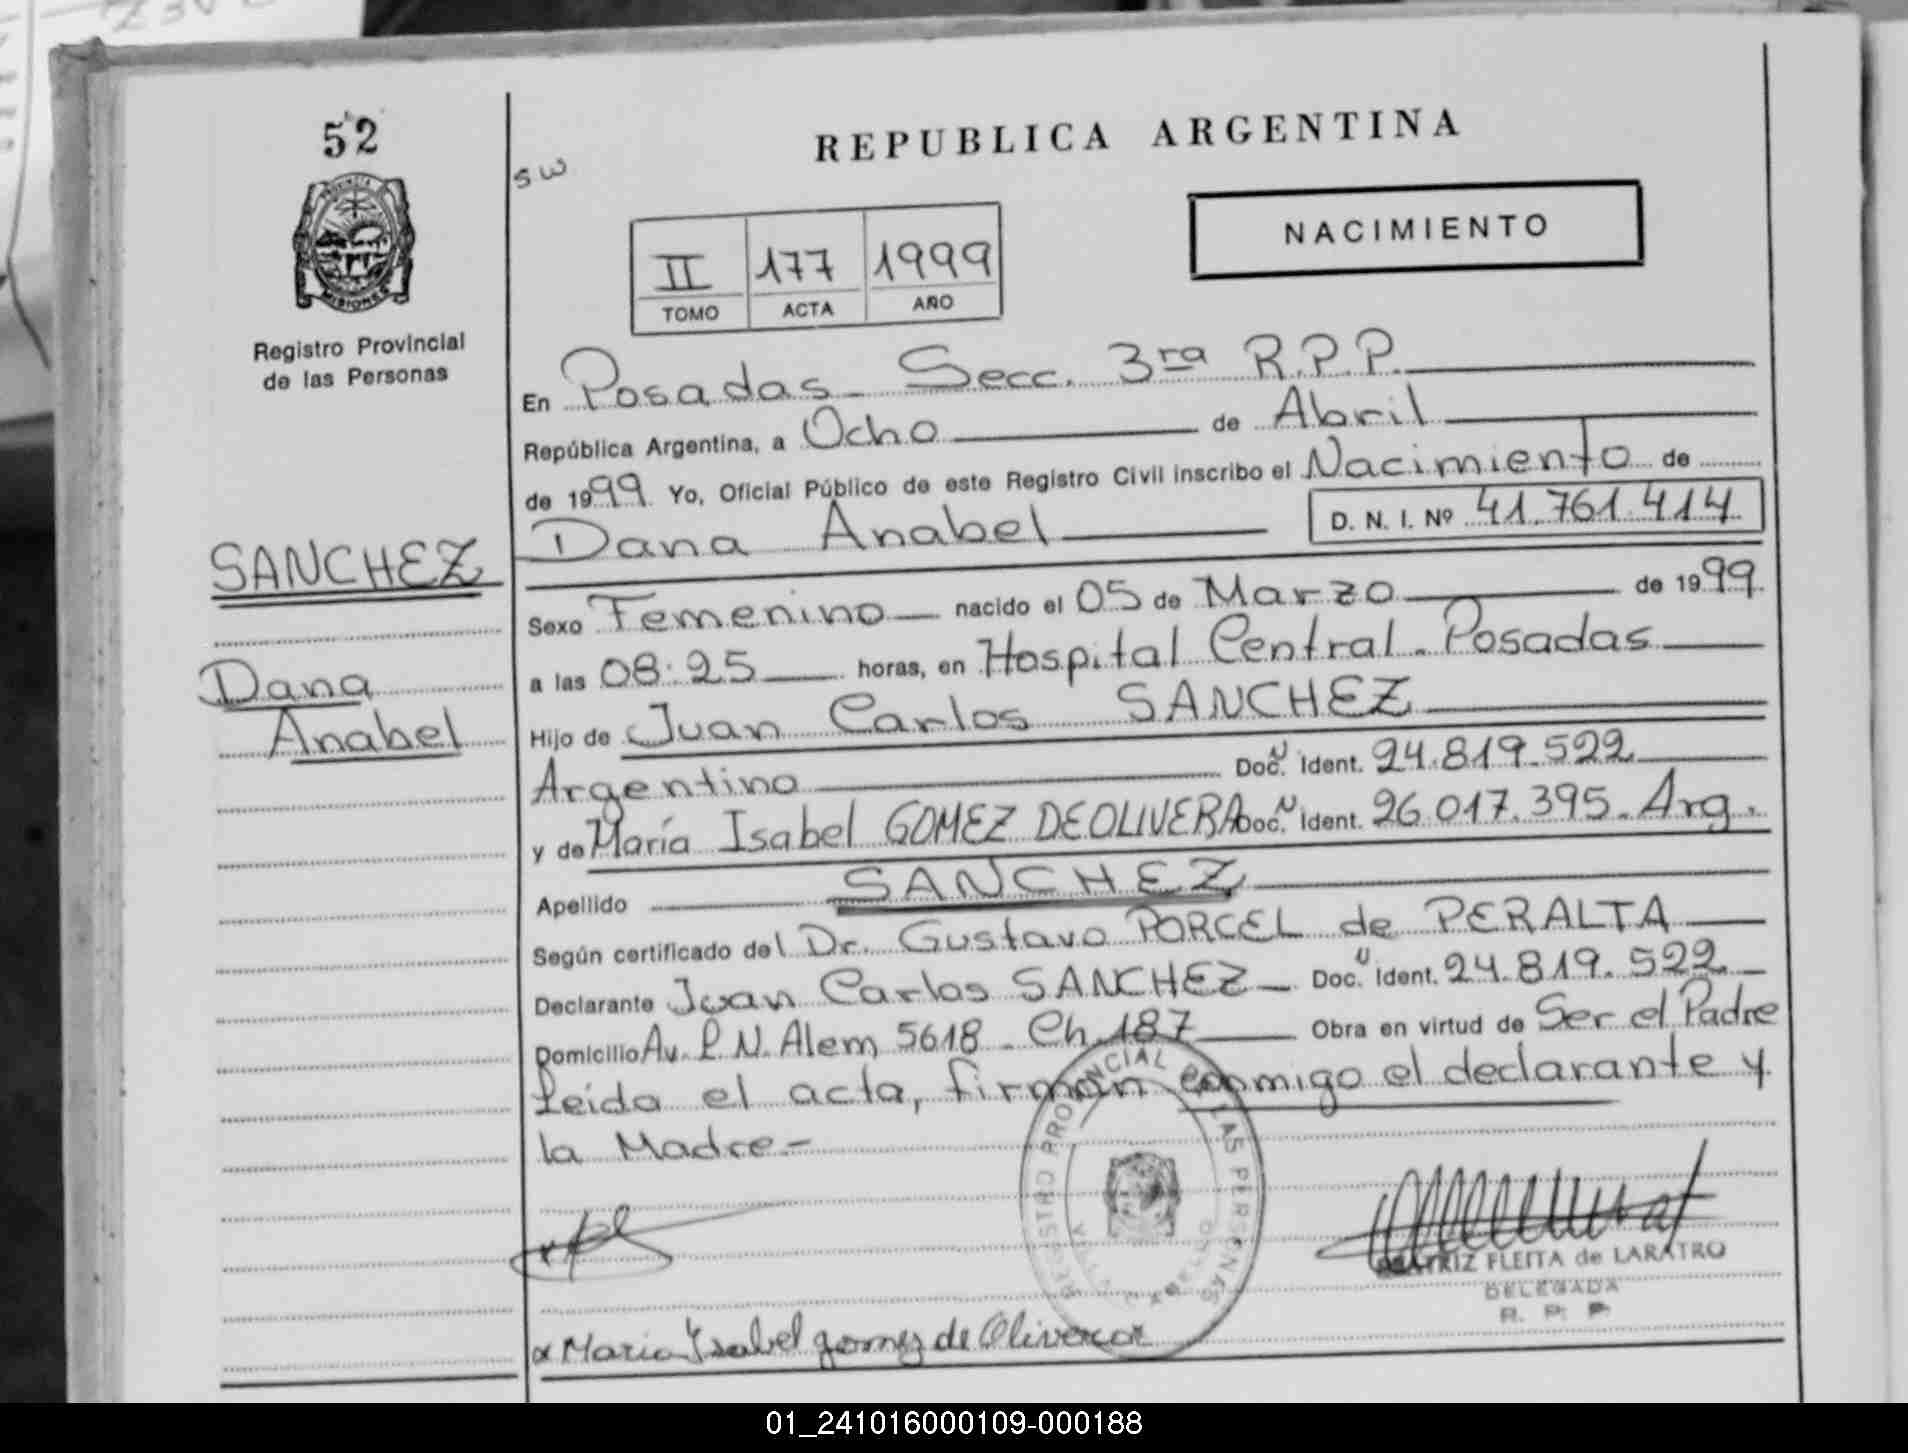 52
PROVINCIA DE
MISIONES
Registro Provincial
de las Personas
SANCHEZ
Dana
Anabel
SW
REPUBLICA ARGENTINA
NACIMIENTO
II 177 1999
TOMO ACTA AÑO
En Posadas Secc. 3ra R.P.P.
República Argentina, a Ocho de Abril
de 1999 Yo, Oficial Público de este Registro Civil inscribo el Nacimiento de
Dana Anabel D. N. I. Nº 41.761.414
Sexo Femenino nacido el 05 de Marzo de 1999.
a las 08:25 horas, en Hospital Central - Posadas
Hijo de Juan Carlos SANCHEZ
Argentino Doc. Ident. 24.819.522
y de María Isabel GOMEZ DE OLIVERA Doc. Ident. 26.017.395. Arg.
Apellido SANCHEZ
Según certificado del Dr. Gustavo PORCEL de PERALTA
Declarante Juan Carlos SANCHEZ - Doc. Ident. 24.819.522
Domicilio Av. L. N. Alem 5618 - Ch. 187 Obra en virtud de Ser el Padre
Leída el acta, firman conmigo el declarante y
la Madre.-
REGISTRO PROVINCIAL DE LAS PERSONAS
VILLA CABELLO
BEATRIZ FLEITA de LARATRO
DELEGADA
R. P. P.
x Maria Ysabel gomez de Olivera
01_241016000109-000188